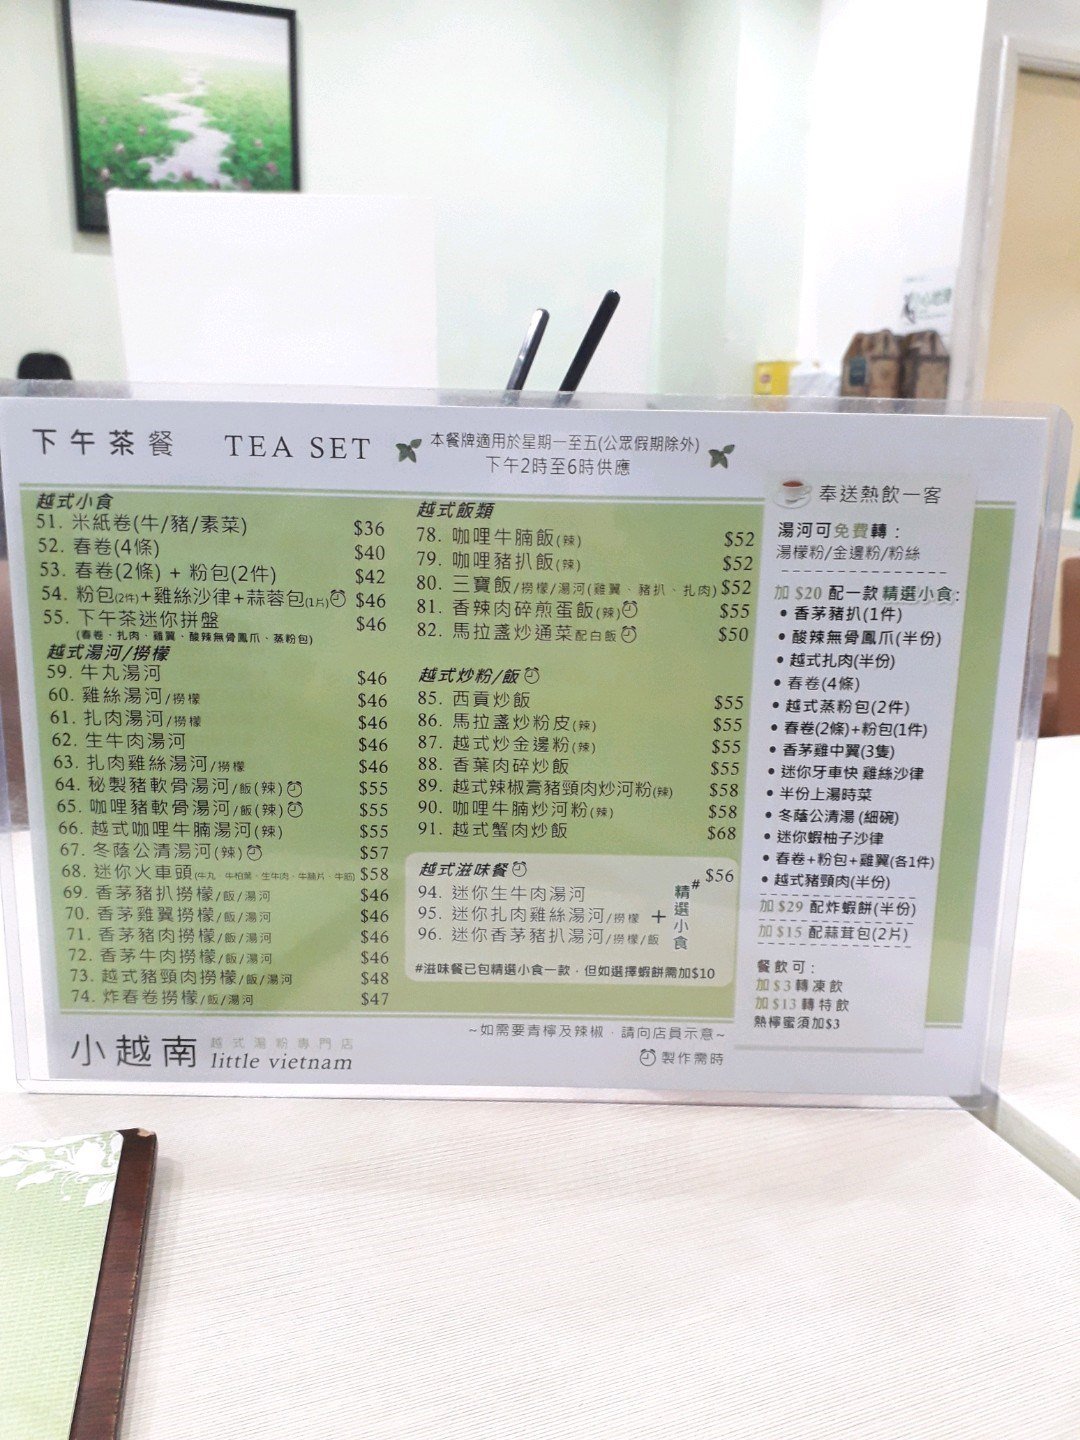 下午茶餐 TEA SET
本餐牌適用於星期一至五(公眾假期除外)
下午2時至6時供應
越式小食
51. 米紙卷(牛/豬/素菜) $36
52. 春卷(4條) $40
53. 春卷(2條) + 粉包(2件) $42
54. 粉包(2件)+雞絲沙律+蒜蓉包(1片) $46
55. 下午茶迷你拼盤 $46
(春卷、扎肉、雞翼、酸辣無骨鳳爪、蒸粉包)
越式湯河/撈檬
59. 牛丸湯河 $46
60. 雞絲湯河/撈檬 $46
61. 扎肉湯河/撈檬 $46
62. 生牛肉湯河 $46
63. 扎肉雞絲湯河/撈檬 $46
64. 秘製豬軟骨湯河/飯(辣) $55
65. 咖哩豬軟骨湯河/飯(辣) $55
66. 越式咖哩牛腩湯河(辣) $55
67. 冬蔭公清湯河(辣) $57
68. 迷你火車頭(牛丸、牛柏葉、生牛肉、牛腩片、牛筋) $58
69. 香茅豬扒撈檬/飯/湯河 $46
70. 香茅雞翼撈檬/飯/湯河 $46
71. 香茅豬肉撈檬/飯/湯河 $46
72. 香茅牛肉撈檬/飯/湯河 $46
73. 越式豬頸肉撈檬/飯/湯河 $48
74. 炸春卷撈檬/飯/湯河 $47
越式飯類
78. 咖哩牛腩飯(辣) $52
79. 咖哩豬扒飯(辣) $52
80. 三寶飯/撈檬/湯河(雞翼、豬扒、扎肉) $52
81. 香辣肉碎煎蛋飯(辣) $55
82. 馬拉盞炒通菜配白飯 $50
越式炒粉/飯
85. 西貢炒飯 $55
86. 馬拉盞炒粉皮(辣) $55
87. 越式炒金邊粉(辣) $55
88. 香葉肉碎炒飯 $55
89. 越式辣椒膏豬頸肉炒河粉(辣) $58
90. 咖哩牛腩炒河粉(辣) $58
91. 越式蟹肉炒飯 $68
越式滋味餐 $56
94. 迷你生牛肉湯河
95. 迷你扎肉雞絲湯河/撈檬
96. 迷你香茅豬扒湯河/撈檬/飯
+ 精選小食#
#滋味餐已包精選小食一款，但如選擇蝦餅需加$10
奉送熱飲一客
湯河可免費轉：
湯檬粉/金邊粉/粉絲
加 $20 配一款精選小食:
• 香茅豬扒(1件)
• 酸辣無骨鳳爪(半份)
• 越式扎肉(半份)
• 春卷(4條)
• 越式蒸粉包(2件)
• 春卷(2條)+粉包(1件)
• 香茅雞中翼(3隻)
• 迷你牙車快 雞絲沙律
• 半份上湯時菜
• 冬蔭公清湯 (細碗)
• 迷你蝦柚子沙律
• 春卷+粉包+雞翼(各1件)
• 越式豬頸肉(半份)
加 $29 配炸蝦餅(半份)
加 $15 配蒜茸包(2片)
餐飲可：
加 $3 轉凍飲
加 $13 轉特飲
熱檸蜜須加$3
小越南 越式湯粉專門店
little vietnam
~如需要青檸及辣椒，請向店員示意~
製作需時